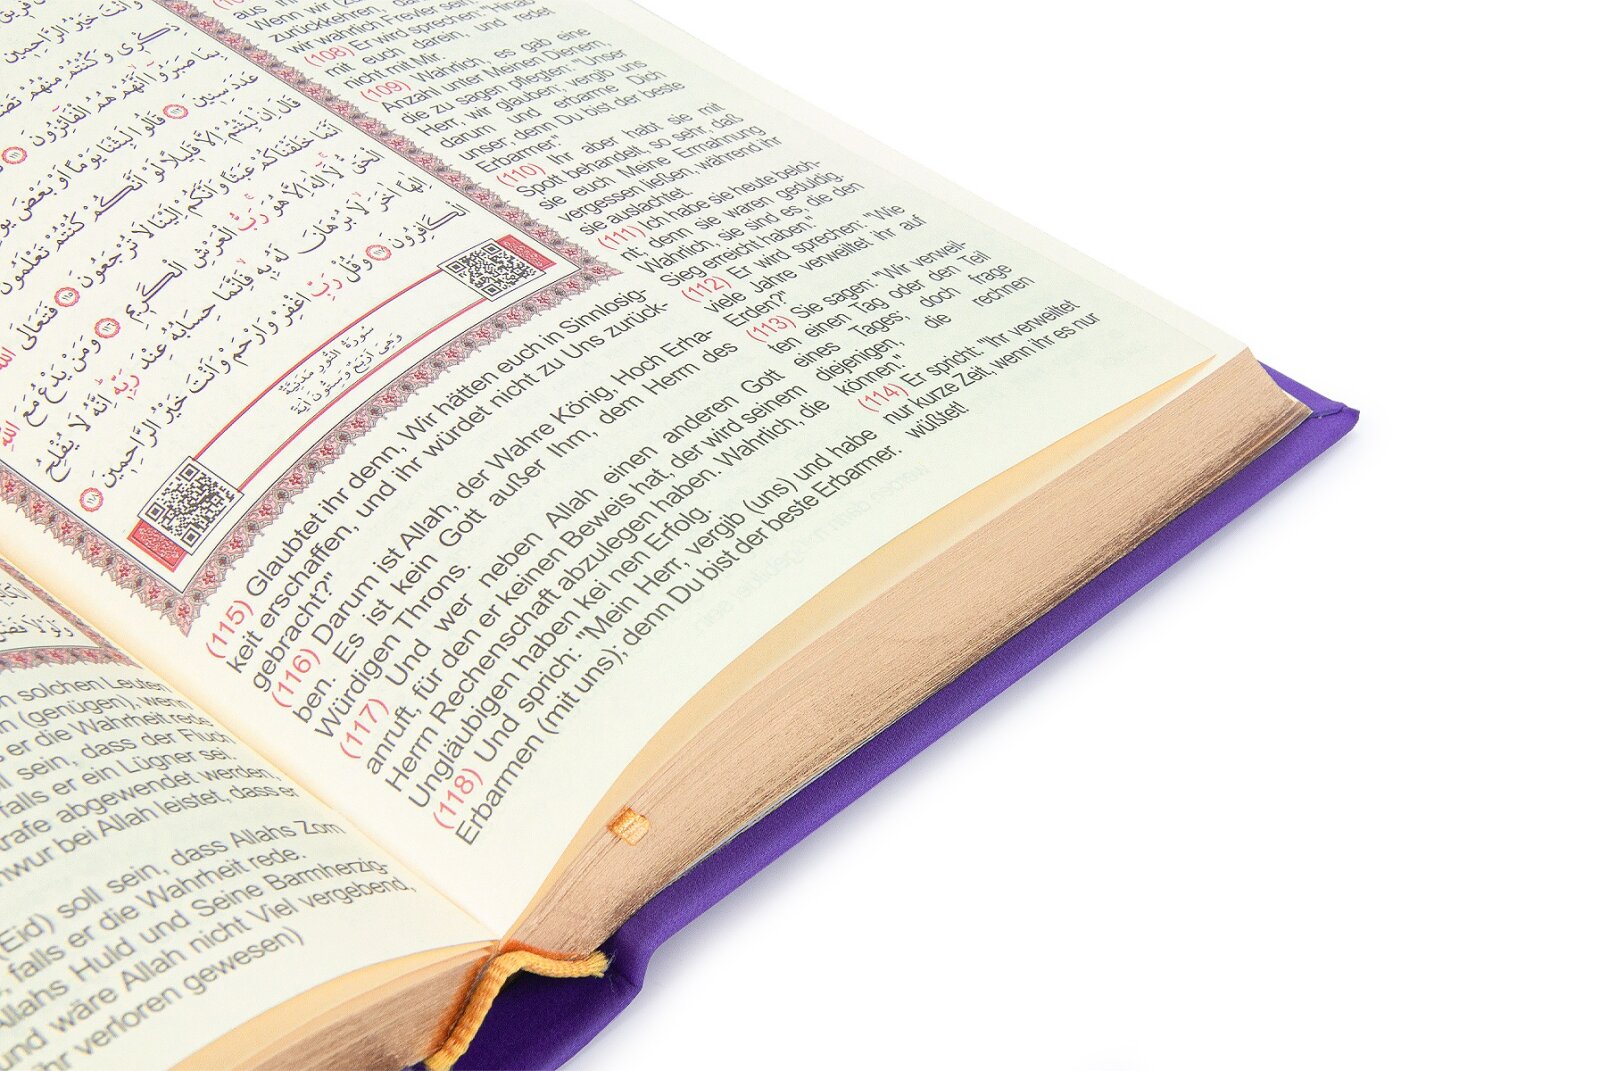 وَأَنْتَ خَيْرُ الرَّاحِمِينَ
ذِكْرِي وَكُنْتُمْ مِنْهُمْ
بِمَا صَبَرُوا أَنَّهُمْ هُمُ الْفَائِزُونَ ١١١
عَدَدَ سِنِينَ ١١٢ قَالُوا لَبِثْنَا يَوْمًا أَوْ بَعْضَ
قَالَ إِنْ لَبِثْتُمْ إِلَّا قَلِيلًا لَوْ أَنَّكُمْ كُنْتُمْ تَعْلَمُونَ
أَنَّمَا خَلَقْنَاكُمْ عَبَثًا وَأَنَّكُمْ إِلَيْنَا لَا تُرْجَعُونَ ١١٥ فَتَعَالَى اللّٰهُ
الْحَقُّ لَا إِلٰهَ إِلَّا هُوَ رَبُّ الْعَرْشِ الْكَرِيمِ ١١٦ وَمَنْ يَدْعُ مَعَ اللّٰهِ
إِلٰهًا آخَرَ لَا بُرْهَانَ لَهُ بِهِ فَإِنَّمَا حِسَابُهُ عِنْدَ رَبِّهِ إِنَّهُ لَا يُفْلِحُ
الْكَافِرُونَ ١١٧ وَقُلْ رَبِّ اغْفِرْ وَارْحَمْ وَأَنْتَ خَيْرُ الرَّاحِمِينَ ١١٨
سُورَةُ النُّورِ مَدَنِيَّةٌ
وَهِيَ أَرْبَعٌ وَسِتُّونَ آيَةً
aus ih
Wenn wir
zurückkehren, dann
wir wahrlich Frevler sein."
(108) Er wird sprechen: "Hinab
mit euch darein, und redet
nicht mit Mir.
(109) Wahrlich, es gab eine
Anzahl unter Meinen Dienern,
die zu sagen pflegten: "Unser
Herr, wir glauben; vergib uns
darum und erbarme Dich
unser, denn Du bist der beste
Erbarmer."
(110) Ihr aber habt sie mit
Spott behandelt, so sehr, daß
sie euch Meine Ermahnung
vergessen ließen, während ihr
sie auslachtet.
(111) Ich habe sie heute beloh-
nt; denn sie waren geduldig.
Wahrlich, sie sind es, die den
Sieg erreicht haben."
(112) Er wird sprechen: "Wie
viele Jahre verweiltet ihr auf
Erden?"
(113) Sie sagen: "Wir verweil-
ten einen Tag oder den Teil
eines Tages; doch frage
diejenigen, die rechnen
können."
(114) Er spricht: "Ihr verweiltet
nur kurze Zeit, wenn ihr es nur
wüßtet!
(115) Glaubtet ihr denn, Wir hätten euch in Sinnlosig-
keit erschaffen, und ihr würdet nicht zu Uns zurück-
gebracht?"
(116) Darum ist Allah, der Wahre König, Hoch Erha-
ben. Es ist kein Gott außer Ihm, dem Herrn des
Würdigen Throns.
(117) Und wer neben Allah einen anderen Gott
anruft, für den er keinen Beweis hat, der wird seinem
Herrn Rechenschaft abzulegen haben. Wahrlich, die
Ungläubigen haben kei nen Erfolg.
(118) Und sprich: "Mein Herr, vergib (uns) und habe
Erbarmen (mit uns); denn Du bist der beste Erbarmer.
solchen Leuten
(genügen), wenn
er die Wahrheit rede.
sein, dass der Fluch
falls er ein Lügner sei.
trafe abgewendet werden,
hwur bei Allah leistet, dass er
(Eid) soll sein, dass Allahs Zorn
falls er die Wahrheit rede.
Allahs Huld und Seine Barmherzig-
und wäre Allah nicht Viel vergebend,
hr verloren gewesen)